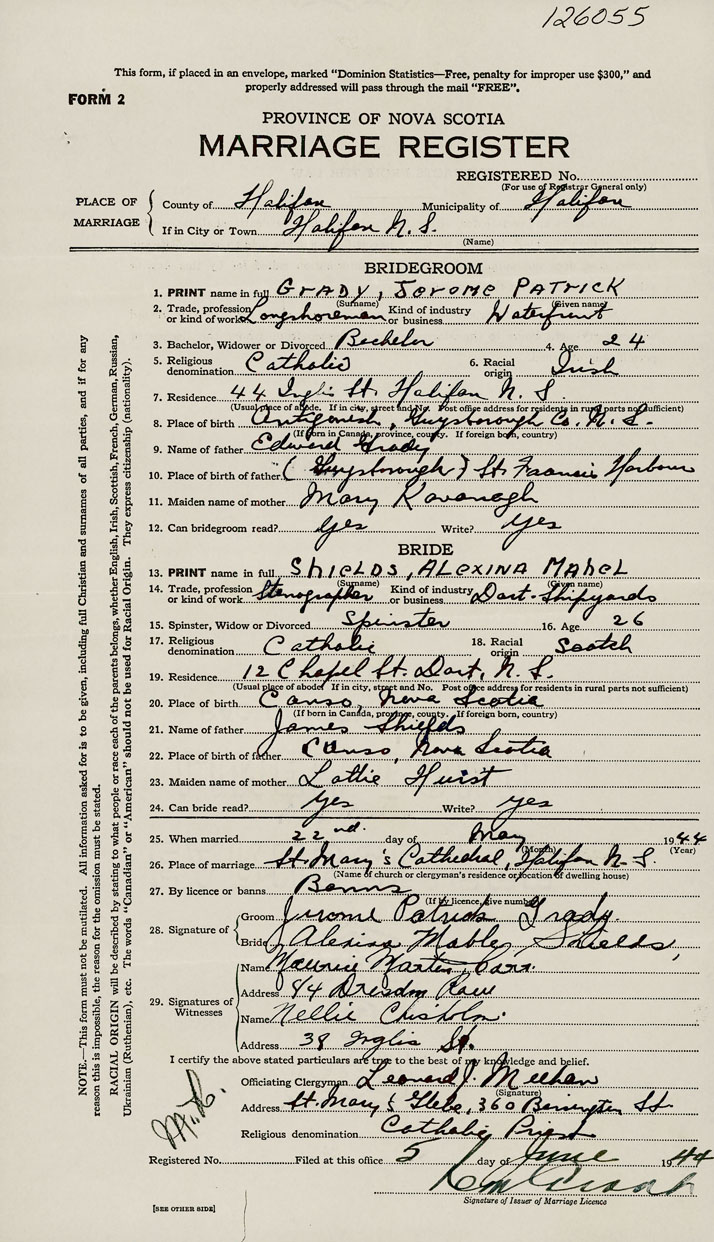 126055
This form, if placed in an envelope, marked "Dominion Statistics—Free, penalty for improper use $300," and
properly addressed will pass through the mail "FREE".
FORM 2
PROVINCE OF NOVA SCOTIA
MARRIAGE REGISTER
REGISTERED No.
(For use of Registrar General only)
PLACE OF MARRIAGE
County of Halifax Municipality of Halifax
If in City or Town Halifax N. S.
(Name)
BRIDEGROOM
1. PRINT name in full GRADY, JOROME PATRICK
(Surname) (Given name)
2. Trade, profession or kind of work Longshoreman Kind of industry or business Waterfront
3. Bachelor, Widower or Divorced Bachelor 4. Age 24
5. Religious denomination Catholic 6. Racial origin Irish
7. Residence 44 Inglis St. Halifax N. S.
(Usual place of abode. If in city, street and No. Post office address for residents in rural parts not sufficient)
8. Place of birth Antigonish, Guysborough Co. N. S.
(If born in Canada, province, county. If foreign born, country)
9. Name of father Edward Grady
10. Place of birth of father (Guysborough) St. Francis Harbour
11. Maiden name of mother Mary Kavanagh
12. Can bridegroom read? Yes Write? Yes
BRIDE
13. PRINT name in full SHIELDS, ALEXINA MABEL
(Surname) (Given name)
14. Trade, profession or kind of work Stenographer Kind of industry or business Dart. Shipyards
15. Spinster, Widow or Divorced Spinster 16. Age 26
17. Religious denomination Catholic 18. Racial origin Scotch
19. Residence 12 Chapel St. Dart, N. S.
(Usual place of abode. If in city, street and No. Post office address for residents in rural parts not sufficient)
20. Place of birth Canso, Nova Scotia
(If born in Canada, province, county. If foreign born, country)
21. Name of father James Shields
22. Place of birth of father Canso, Nova Scotia
23. Maiden name of mother Lottie Hurst
24. Can bride read? Yes Write? Yes
25. When married 22nd. day of May 1944
(Month) (Year)
26. Place of marriage St. Mary's Cathedral, Halifax N. S.
(Name of church or clergyman's residence or location of dwelling house)
27. By licence or banns Banns
(If by licence, give number)
28. Signature of
Groom Jerome Patrick Grady.
Bride Alexina Mable Shields,
29. Signatures of Witnesses
Name Maurice Martin
Address 44 Dresden Row
Name Nellie Chisholm.
Address 38 Inglis St.
I certify the above stated particulars are true to the best of my knowledge and belief.
Officiating Clergyman Leonard J. Meehan
(Signature)
Address St. Mary's Glebe, 360 Barrington St
Religious denomination Catholic Priest
Registered No. Filed at this office 5 day of June 1944
Signature of Issuer of Marriage Licence
[SEE OTHER SIDE]
NOTE.—This form must not be mutilated. All information asked for is to be given, including full Christian and surnames of all parties, and if for any
reason this is impossible, the reason for the omission must be stated.
RACIAL ORIGIN will be described by stating to what people or race each of the parents belongs, whether English, Irish, Scottish, French, German, Russian,
Ukrainian (Ruthenian), etc. The words "Canadian" or "American" should not be used for Racial Origin. They express citizenship (nationality).